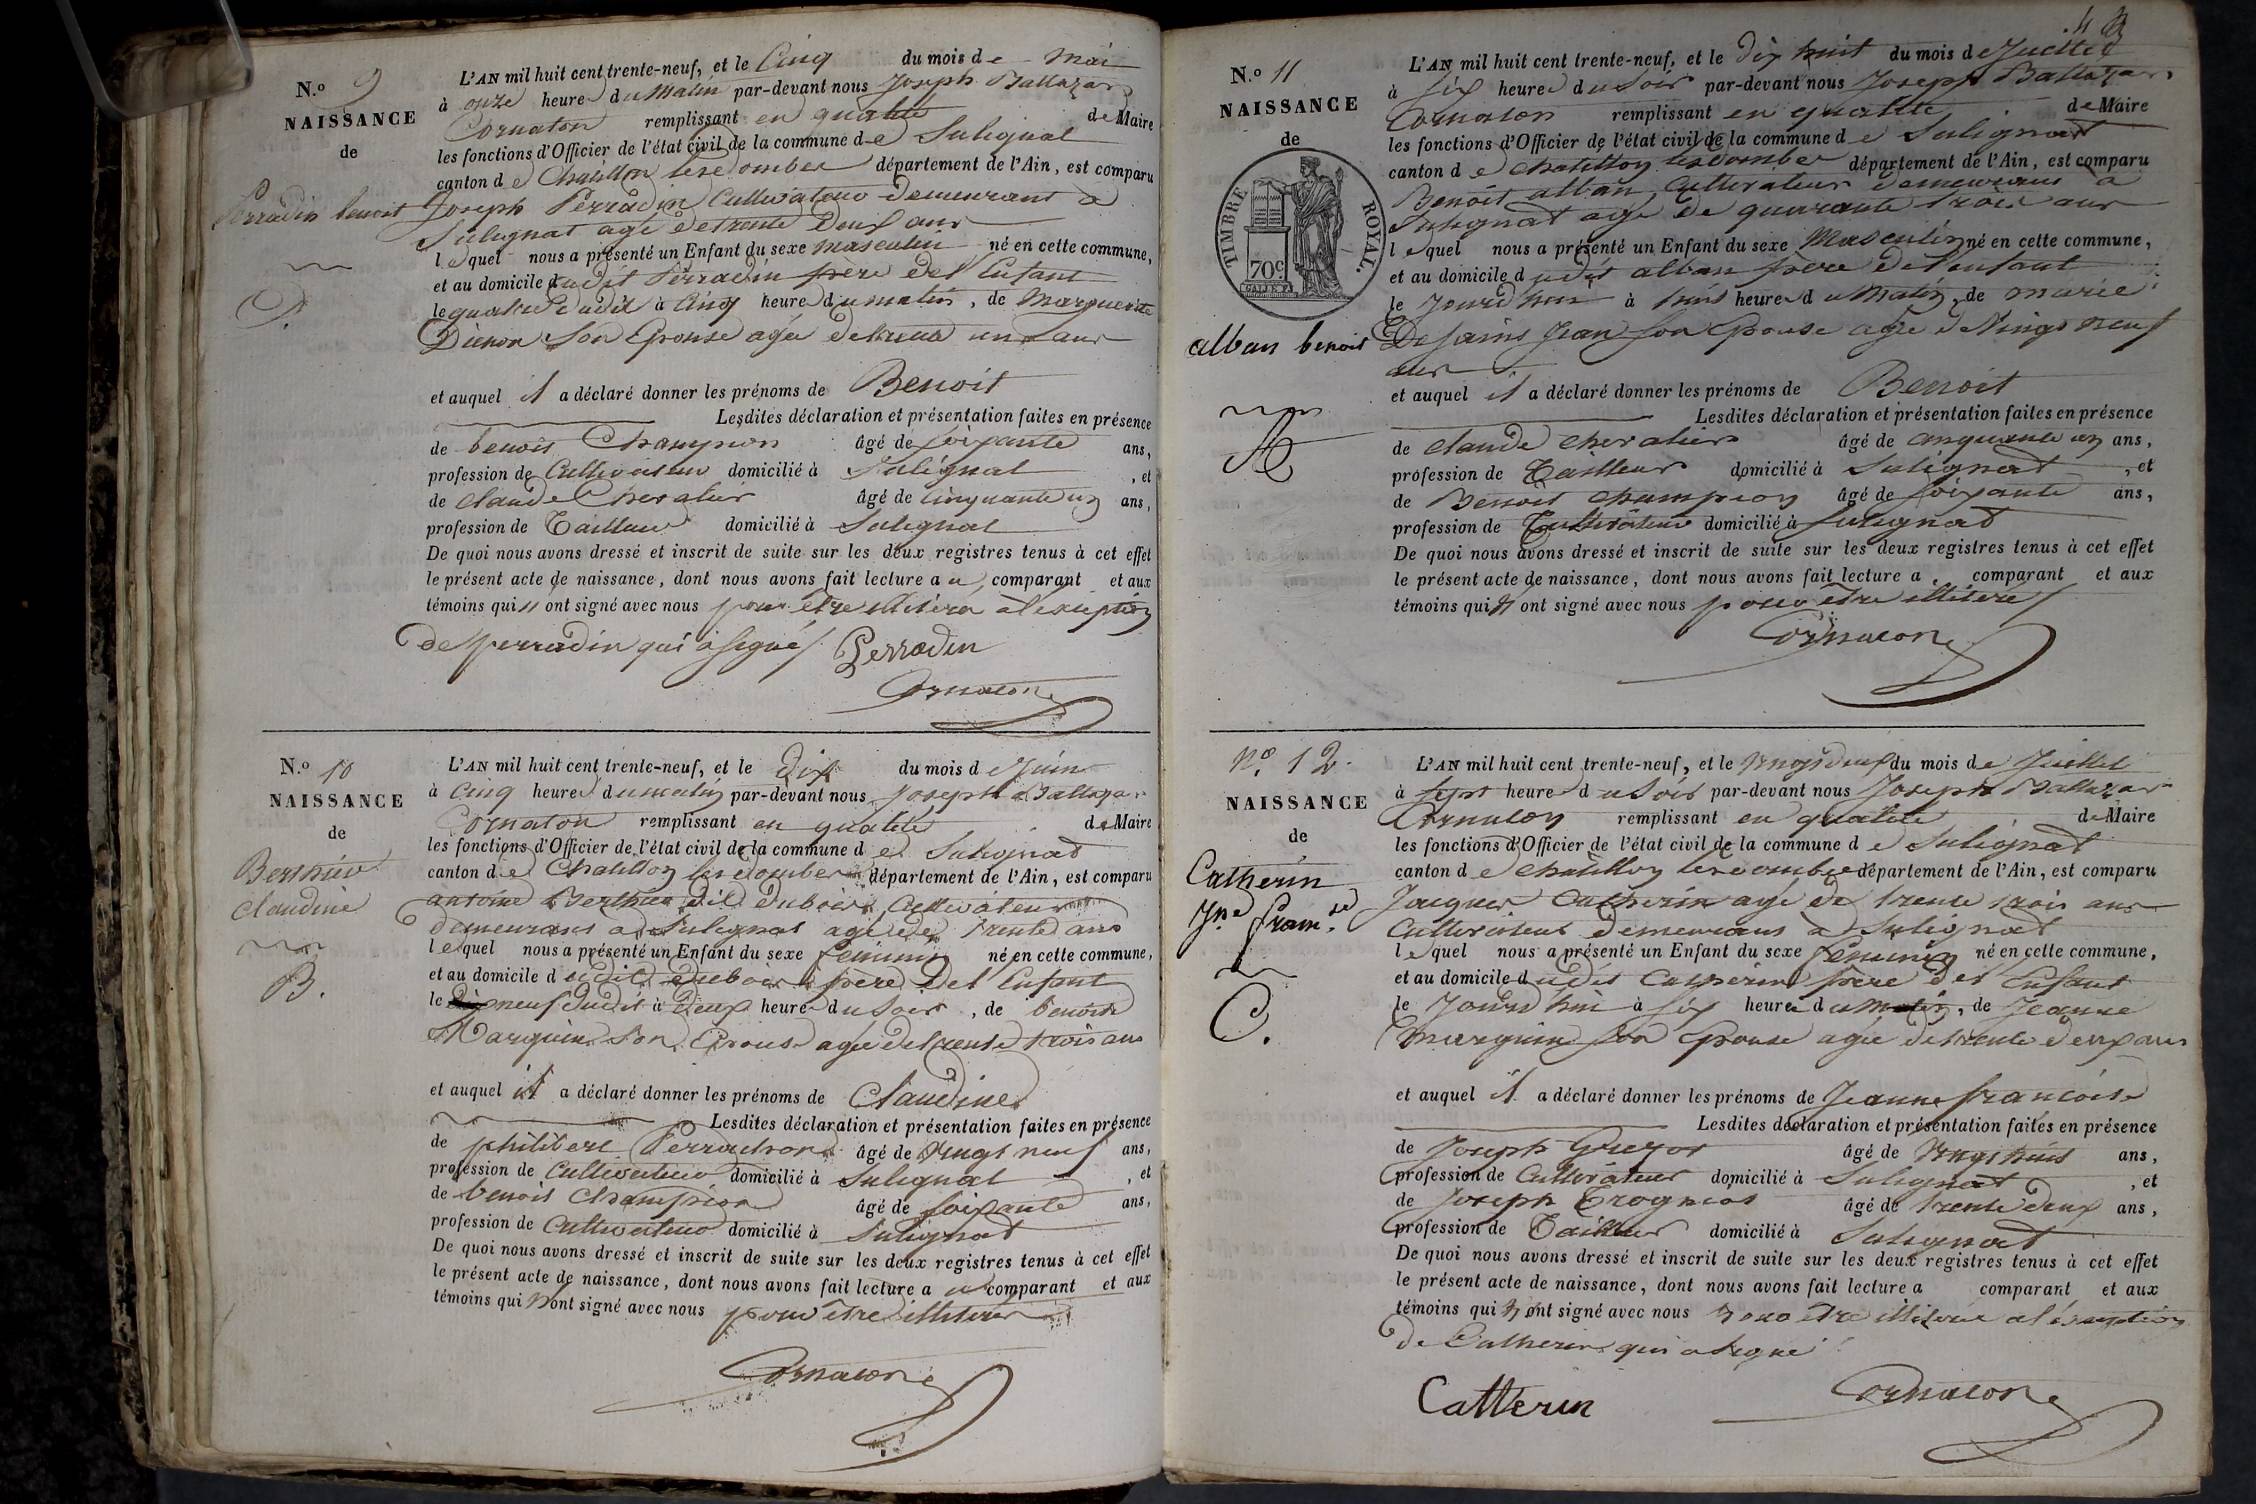 N.o 9
NAISSANCE
de
Perradin benoit
P.
L'AN mil huit cent trente-neuf, et le Cinq du mois de Mai
à onze heures du Matin par-devant nous Joseph Baltazar
Cornaton remplissant en qualité de Maire
les fonctions d'Officier de l'état civil de la commune de Sulignat
canton de Chatillon les dombes département de l'Ain, est comparu
Joseph Perradin Cultivateur demeurant à
Sulignat agé de trente Deux ans
lequel nous a présenté un Enfant du sexe masculin né en cette commune,
et au domicile dudit Perradin père del'Enfant
le quatre dudit à Cinq heures du matin, de Marguerite
son Epouse agée de trente un ans
et auquel il a déclaré donner les prénoms de Benoit
Lesdites déclaration et présentation faites en présence
de benoit Champion âgé de soixante ans,
profession de Cultivateur domicilié à Sulignat, et
de Claude Chevalier âgé de Cinquante un ans,
profession de Tailleur domicilié à Sulignat
De quoi nous avons dressé et inscrit de suite sur les deux registres tenus à cet effet
le présent acte de naissance, dont nous avons fait lecture au comparant et aux
témoins qui n ont signé avec nous pour être illiteré à l'exception
de perradin qui a signé Perradin
Cornaton
N.o 10
NAISSANCE
de
Berthier
Claudine
B.
L'AN mil huit cent trente-neuf, et le Dix du mois de Juin
à Cinq heures du matin par-devant nous Joseph Baltazar
Cornaton remplissant en qualité de Maire
les fonctions d'Officier de l'état civil de la commune de Sulignat
canton de Chatillon les dombes département de l'Ain, est comparu
antoine Berthier dit Dubois Cultivateur
demeurant à Sulignat agé de trente ans
lequel nous a présenté un Enfant du sexe feminin né en cette commune,
et au domicile dudit Dubois père del'Enfant
le neuf dudit à Deux heures du Soir, de benoite
Marguin Son Epouse agée de trente trois ans
et auquel il a déclaré donner les prénoms de Claudine
Lesdites déclaration et présentation faites en présence
de philibert Perrachon âgé de Vingt neuf ans,
profession de Cultivateur domicilié à Sulignat, et
de benoit Champion âgé de soixante ans,
profession de Cultivateur domicilié à Sulignat
De quoi nous avons dressé et inscrit de suite sur les deux registres tenus à cet effet
le présent acte de naissance, dont nous avons fait lecture au comparant et aux
témoins qui n ont signé avec nous pour être illiteré
Cornaton
N.o 11
NAISSANCE
de
TIMBRE ROYAL.
70c
alban benoit
A
L'AN mil huit cent trente-neuf, et le Dix huit du mois de Juillet
à six heures du Soir par-devant nous Joseph Baltazar
Cornaton remplissant en qualité de Maire
les fonctions d'Officier de l'état civil de la commune de Sulignat
canton de Chatillon les dombes département de l'Ain, est comparu
Benoit alban, Cultivateur demeurant à
Sulignat agé de quarante trois ans
lequel nous a présenté un Enfant du sexe Masculin né en cette commune,
et au domicile dudit alban père del'enfant
le Jourd'hui à huit heures du Matin, de marie
Desains Jean son Epouse agée de Vingt neuf
ans
et auquel il a déclaré donner les prénoms de Benoit
Lesdites déclaration et présentation faites en présence
de Claude Chevalier âgé de Cinquante un ans,
profession de Tailleur domicilié à Sulignat, et
de Benoit Champion âgé de soixante ans,
profession de Cultivateur domicilié à Sulignat
De quoi nous avons dressé et inscrit de suite sur les deux registres tenus à cet effet
le présent acte de naissance, dont nous avons fait lecture a comparant et aux
témoins qui n ont signé avec nous pour être illiteré
Cornaton
N.o 12.
NAISSANCE
de
Catherin
Jne. franse.
C.
L'AN mil huit cent trente-neuf, et le Vingt deux du mois de Juillet
à sept heures du Soir par-devant nous Joseph Baltazar
Cornaton remplissant en qualité de Maire
les fonctions d'Officier de l'état civil de la commune de Sulignat
canton de Chatillon les dombes département de l'Ain, est comparu
Jacques Catherin agé de trente trois ans
Cultivateur demeurant à Sulignat
lequel nous a présenté un Enfant du sexe féminin né en cette commune,
et au domicile dudit Catherin père del'Enfant
le Jourd'hui à six heures du Matin, de Jeanne
Marguin son Epouse agée de trente deux ans
et auquel il a déclaré donner les prénoms de Jeanne francoise
Lesdites déclaration et présentation faites en présence
de Joseph Guyot âgé de Vingt huit ans,
profession de Cultivateur domicilié à Sulignat, et
de Joseph âgé de trente deux ans,
profession de Tailleur domicilié à Sulignat
De quoi nous avons dressé et inscrit de suite sur les deux registres tenus à cet effet
le présent acte de naissance, dont nous avons fait lecture a comparant et aux
témoins qui n ont signé avec nous pour etre illiteré a l'exception
de Catherin qui a signé
Catterin Cornaton